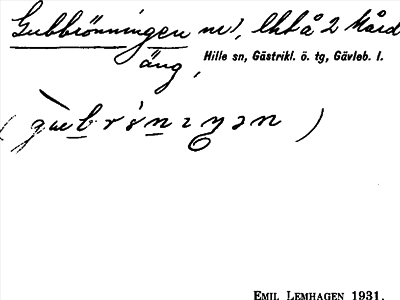 Gubbrönningen nr 1, lht å 2 Mård
äng,
Hille sn, Gästrikl. ö. tg, Gävleb. l.
EMIL LEMHAGEN 1931.